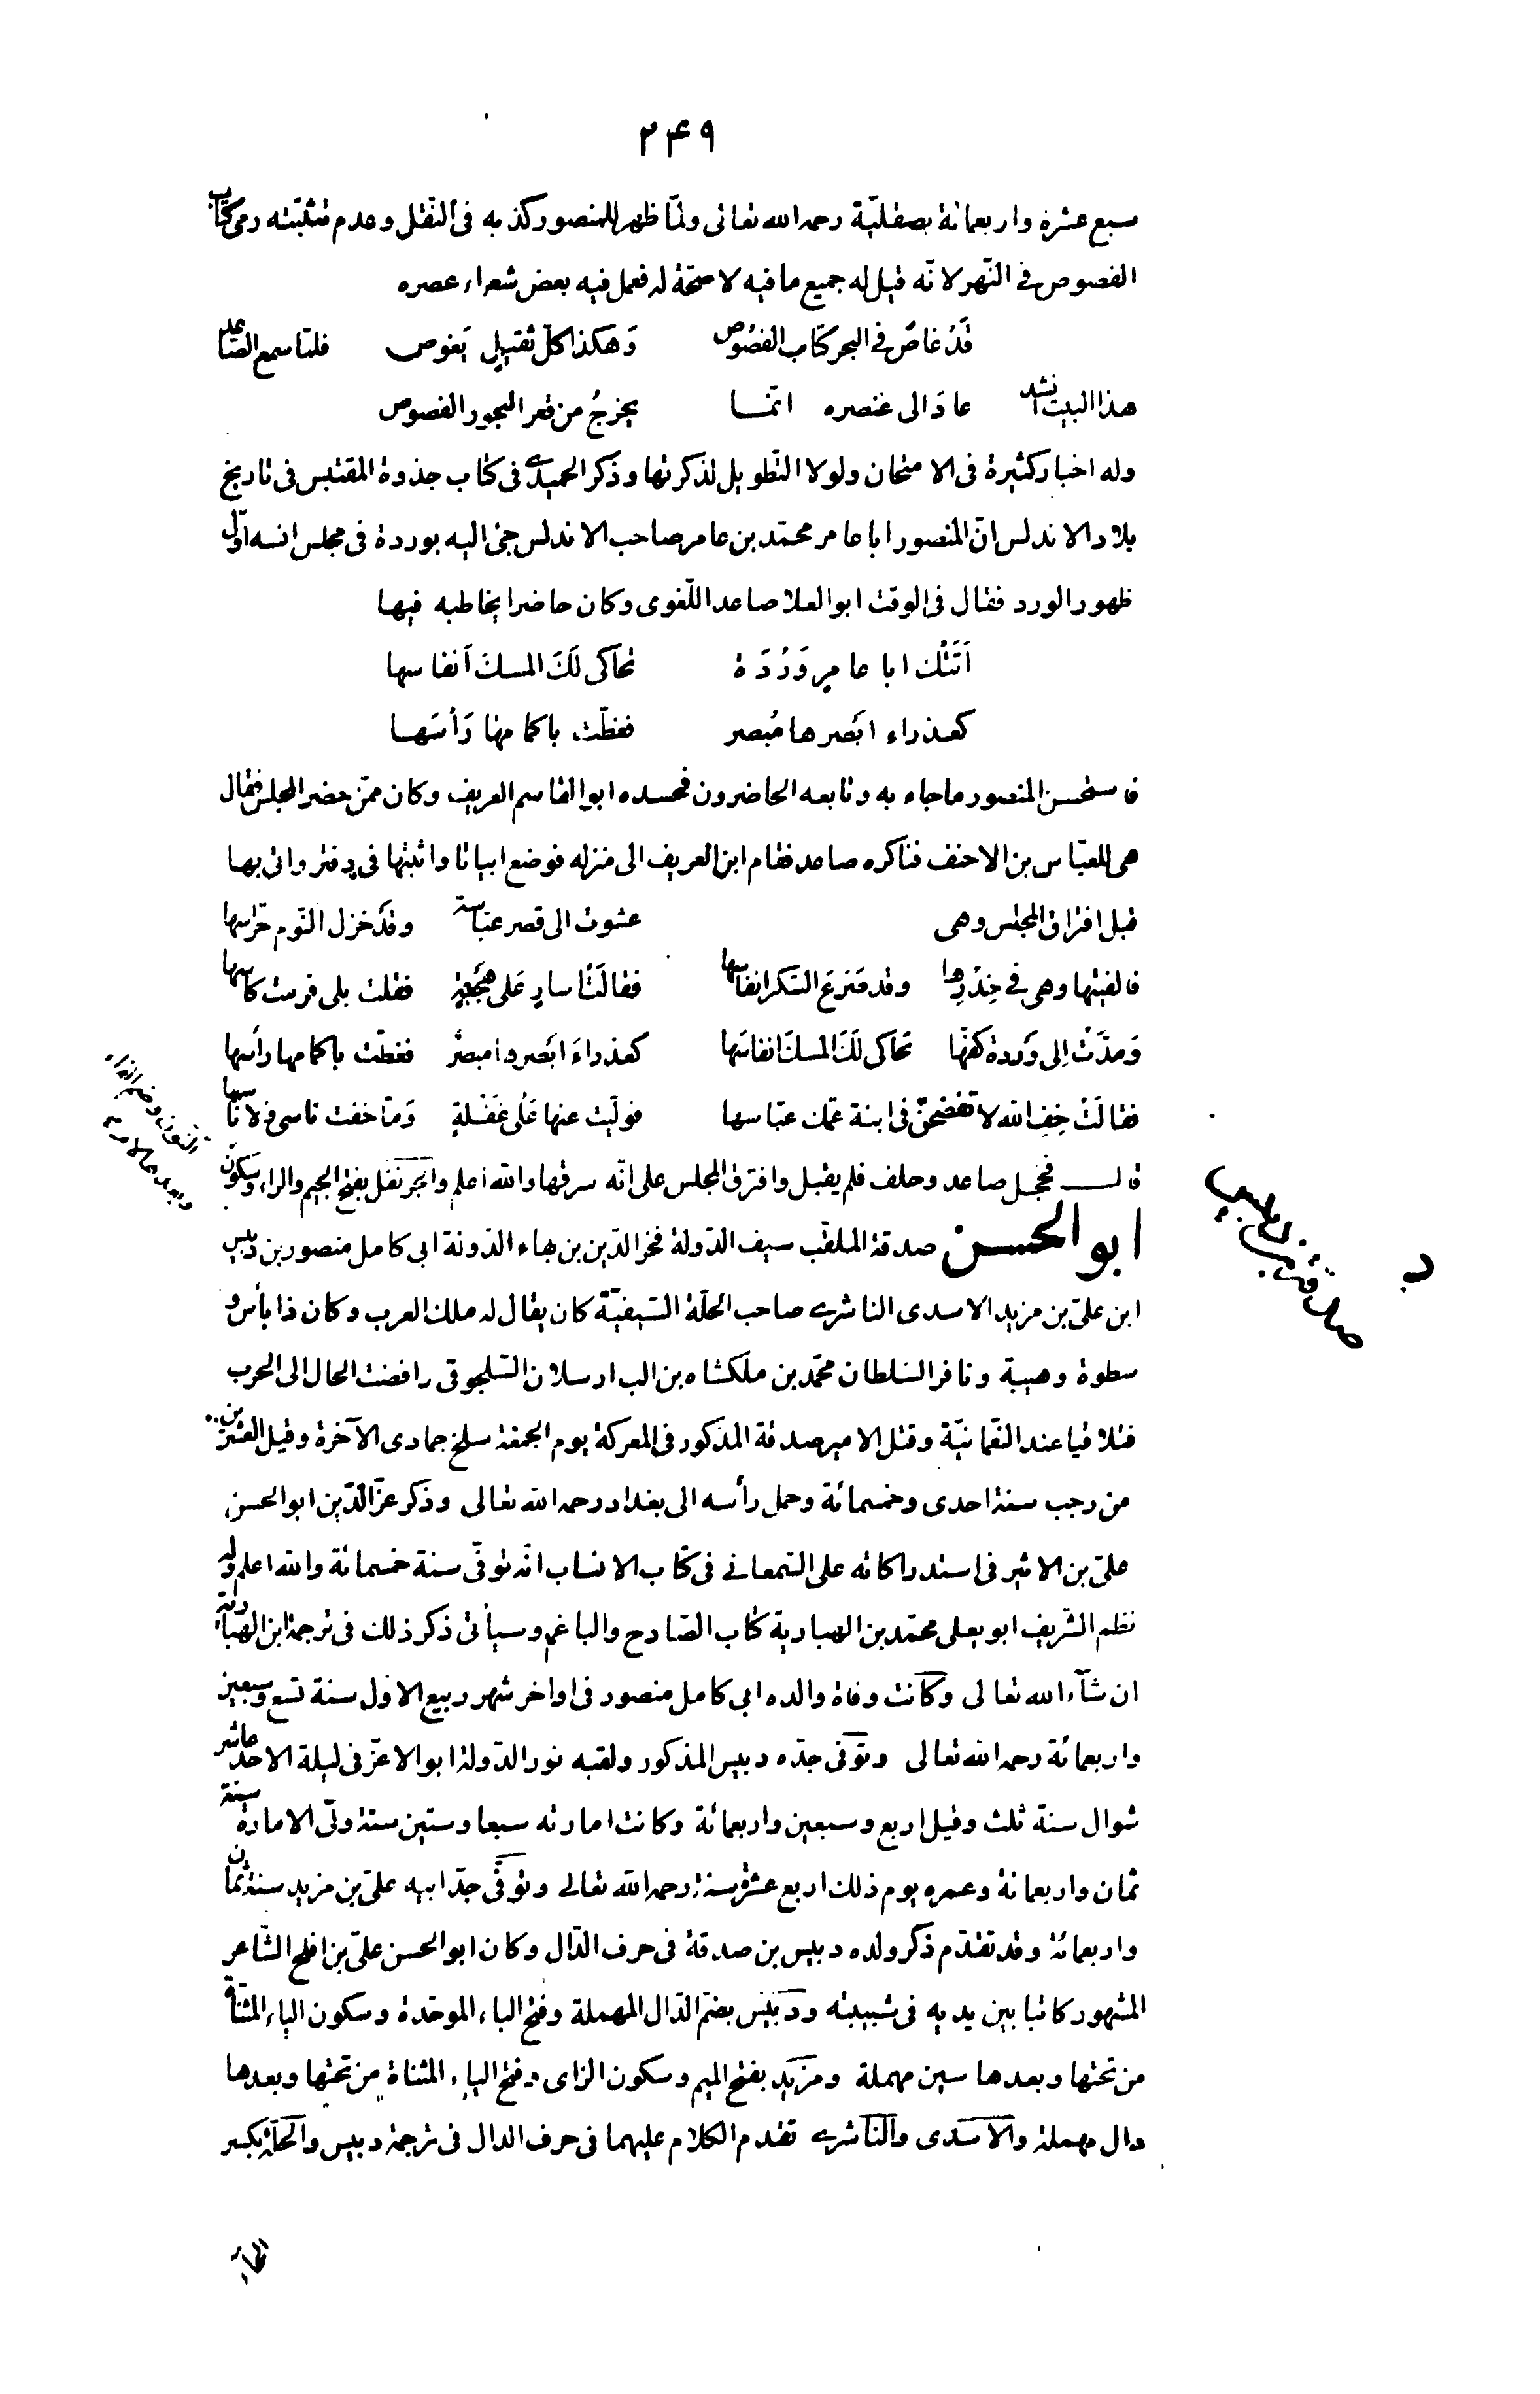 ۲۴۹
سبع عشرة واربعمائة بصقليّة رحمه الله تعالى ولمّا ظهر للمنصور كذبه فى النّقل وعدم تثبّته رمى كتاب
الفصوص فى النّهر لانّه قيل له جميع ما فيه لا صحّة له فعمل فيه بعض شعراء عصره
قَدْ غاصَ فى البحر كتاب الفصُوص وَهكذا كلّ ثقيل يَغوص فلمّا سمع الصّاعد
هذا البيت انشد عادَ الى عنصره انّما يخرجُ من قعر البحور الفصوص
وله اخبار كثيرة فى الامتحان ولولا التّطويل لذكرتها وذكر الحميدى فى كتاب جذوة المقتبس فى تاريخ
بلاد الاندلس انّ المنصور ابا عامر محمّد بن عامر صاحب الاندلس جئ اليه بوردة فى مجلس انسه اوّل
ظهور الورد فقال فى الوقت ابو العلا صاعد اللّغوى وكان حاضرا يخاطبه فيها
اَتَتْك ابا عامرٍ وَرْدَة تحاَكى لَكَ المسكَ اَنفاسها
كعذراء ابَصرها مُبصر فغطّت باكمامها رَأسَها
فاستحسن المنصور ما جاء به وتابعه الحاضرون فحسده ابو القاسم العريف وكان ممّن حضر المجلس فقال
هى للعبّاس بن الاحنف فناكره صاعد فقام ابن العريف الى منزله فوضع ابياتا واثبتها فى دفتر واتى بها
قبل افتراق المجلس وهى عشوت الى قصر عبّاسة وقَد خزل النّوم حرّاسها
فالفيتها وهى فى خِدْرِها وقد صَرعَ السّكر انفاسها فقالَتْ اسارٍ عَلى هَجْعَةٍ فقلت بلى فرمت كاسها
وَمدَّتْ اِلى وَردة كفّها تحَاكى لَكَ المسكَ انفاسَها كعذراءَ ابَصرها مبصرٌ فغطّت باكمامها رأسها
فقالَتْ خِفِ الله لا تفضحنّ فى ابنة عمّك عبّاسها فولّيت عنها عَلى غَفْلةٍ وَما خفت ناسى ولا ناسها
قال فخجل صاعد وحلف فلم يقبل وافترق المجلس على انّه سرقها والله اعلم والجرنفل بفتح الجيم والراء وسكون
النون وضم الفاء
وبعدها لام
ابو الحسن صدقة الملقّب سيف الدّولة فخر الدّين بن بهاء الدّولة ابى كامل منصور بن دبيس
صدقة بن دبيس
ابن علىّ بن مزيد الاسدى الناشرى صاحب الحلّة السّيفيّة كان يقال له ملك العرب وكان ذا بأس و
سطوة وهيبة ونافر السّلطان محمّد بن ملكشاه بن الب ارسلان السّلجوقى رافضت الحال الى الحرب
فتلاقيا عند النّعمانيّة وقتل الامير صدقة المذكور فى المعركة يوم الجمعة سلخ جمادى الآخرة وقيل العشرين
من رجب سنة احدى وخمسمائة وحمل رأسه الى بغداد رحمه الله تعالى وذكر عزّ الدّين ابو الحسن
علىّ بن الاثير فى استدراكاته على السّمعانى فى كتاب الانساب انّه توفّى سنة خمسمائة والله اعلم وله
نظم الشّريف ابو يعلى محمّد بن الهبارية كتاب الصّادح والباغم وسيأتى ذكر ذلك فى ترجمة ابن الهبارية
ان شآء الله تعالى وكانت وفاة والده ابى كامل منصور فى اواخر شهر ربيع الاول سنة تسع وسبعين
واربعمائة رحمه الله تعالى وتوفى جدّه دبيس المذكور ولقبه نور الدّولة ابو الاعزّ فى ليلة الاحد عاشر
شوال سنة ثلث وقيل اربع وسبعين واربعمائة وكانت امارته سبعا وستين سنة ولّى الامارة سنة
ثمان واربعمائة وعمره يوم ذلك اربع عشرة سنة رحمه الله تعالى وتوفّى جدّ ابيه علىّ بن مزيد سنة ثمان
واربعمائة وقد تقدّم ذكر ولده دبيس بن صدقة فى حرف الدّال وكان ابو الحسن علىّ بن افلح الشّاعر
المشهور كاتبا بين يديه فى شبيبته ودبيس بضمّ الدّال المهملة وفتح الباء الموحّدة وسكون الياء المثنّاة
من تحتها وبعدها سين مهملة ومزيد بفتح الميم وسكون الزاى وفتح الياء المثناة من تحتها وبعدها
دال مهملة والاسدى والناشرى تقدم الكلام عليهما فى حرف الدال فى ترجمة دبيس والحلّة بكسر
الحاء